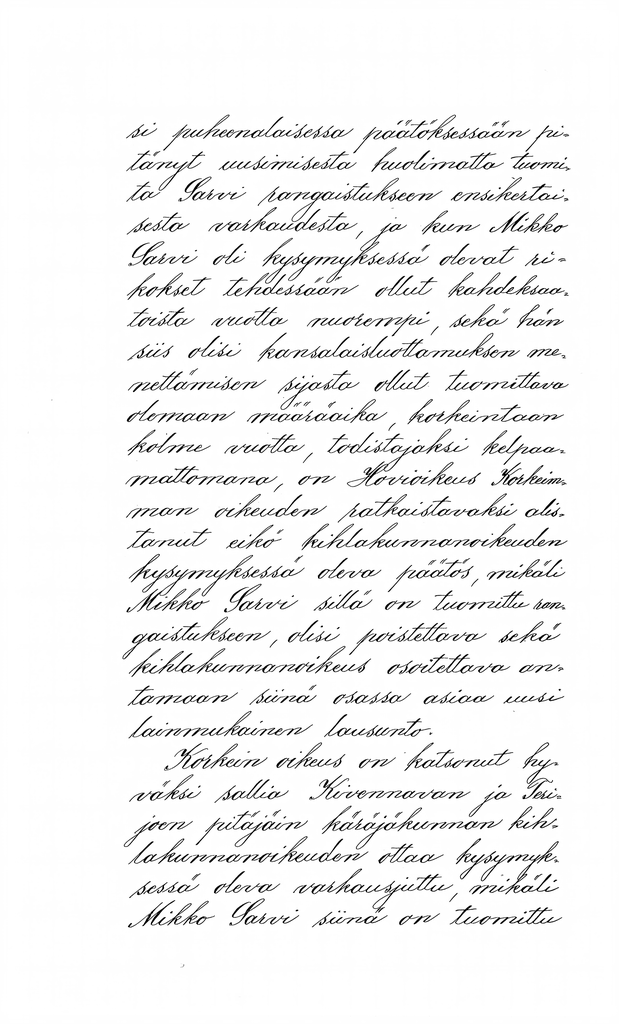 si puheenalaisessa päätöksessään pi-
tänyt uusimisesta huolimatta tuomi-
ta Sarvi rangaistukseen ensikertai-
sesta varkaudesta, ja kun Mikko
Sarvi oli kysymyksessä olevat ri-
kokset tehdessään ollut kahdeksaa-
toista vuotta nuorempi, sekä hän
siis olisi kansalaisluottamuksen me-
nettämisen sijasta ollut tuomittava
olemaan määräaika, korkeintaan
kolme vuotta, todistajaksi kelpaa-
mattomana, on Hovioikeus Korkeim-
man oikeuden ratkaistavaksi alis-
tanut eikö kihlakunnanoikeuden
kysymyksessä oleva päätös, mikäli
Mikko Sarvi sillä on tuomittu ran-
gaistukseen, olisi poistettava sekä
kihlakunnanoikeus osoitettava an-
tamaan siinä osassa asiaa uusi
lainmukainen lausunto.
Korkein oikeus on katsonut hy-
väksi sallia Kivennavan ja Teri-
joen pitäjäin käräjäkunnan kih-
lakunnanoikeuden ottaa kysymyk-
sessä oleva varkausjuttu, mikäli
Mikko Sarvi siinä on tuomittu